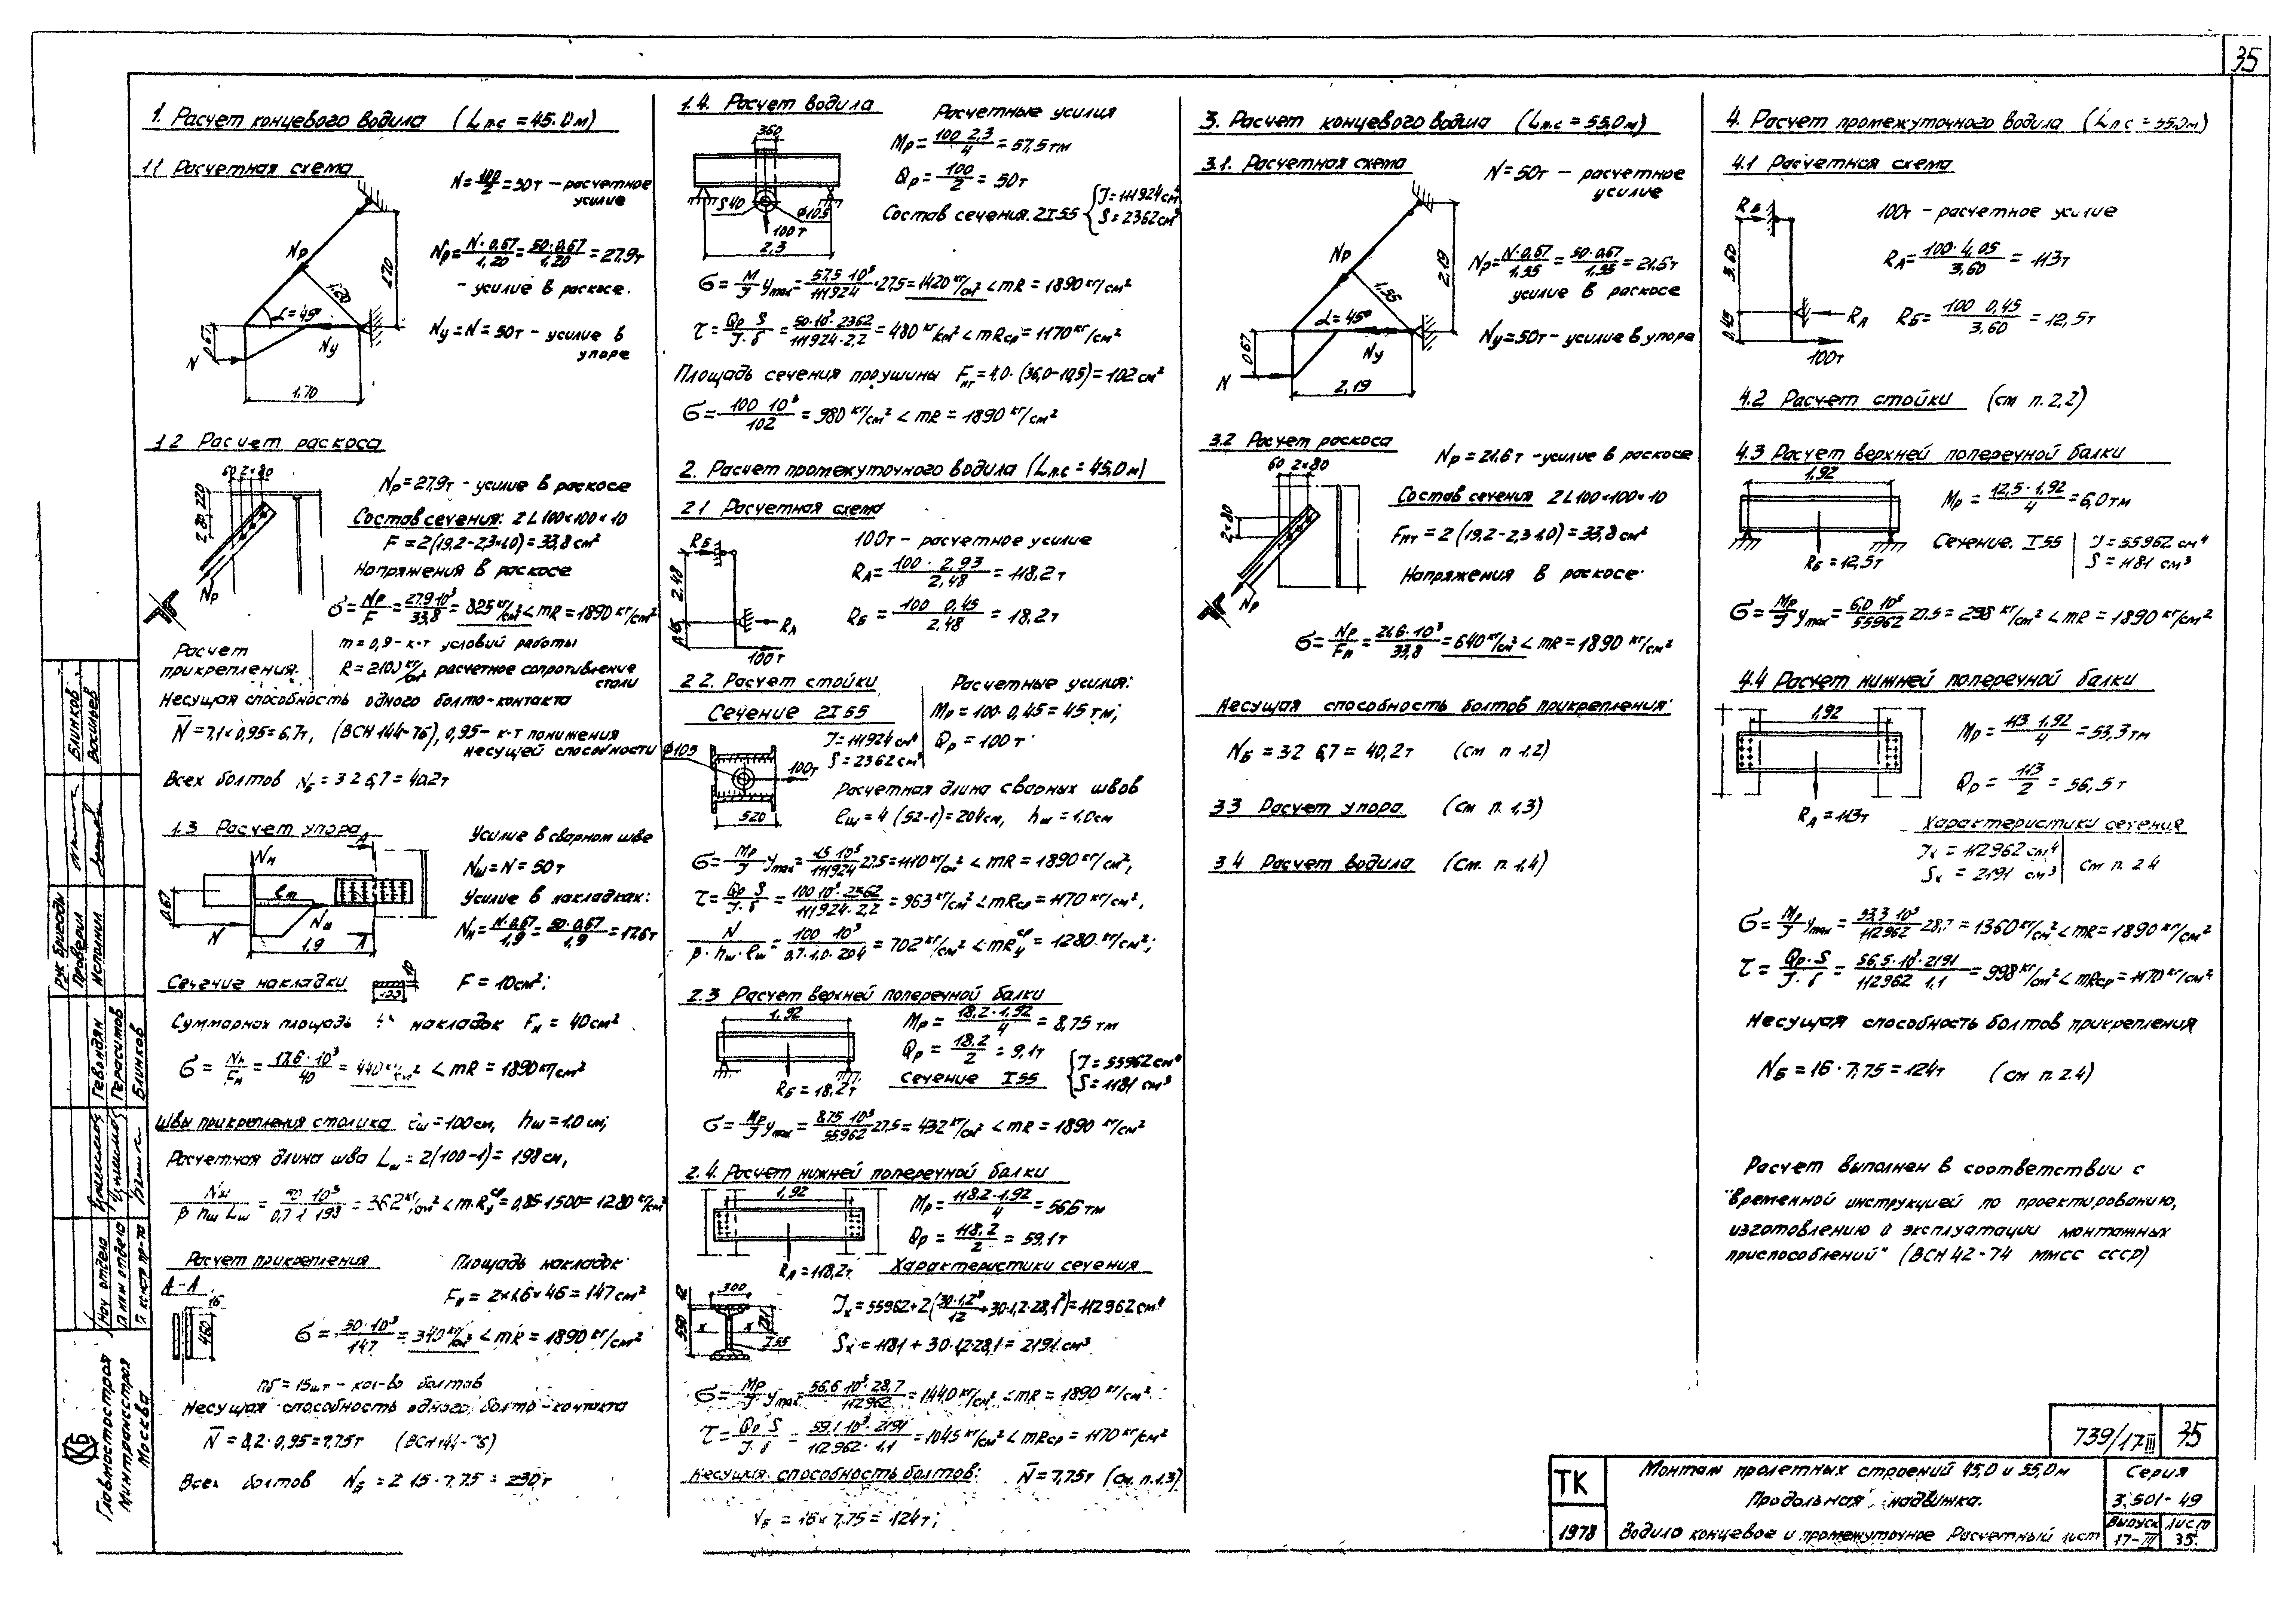 35
1. Расчет концевого водила (Lп.с = 45.0м)
1.1 Расчетная схема
N = 100/2 = 50т – расчетное
усилие
Nр = N·0,67/1,20 = 50·0,67/1,20 = 27,9т
– усилие в раскосе.
Nу = N = 50т – усилие в
упоре
Nр
1,20
1,70
α = 45°
0,67
Nу
N
1,70
1.2 Расчет раскоса
60 2×80
Nр = 27,9т – усилие в раскосе
Состав сечения: 2L100×100×10
F = 2(19,2-2,3×1,0) = 33,8 см²
Напряжения в раскосе
Nр
σ = Nр/F = 27,9·10³/33,8 = 825 кг/см² < mR = 1890 кг/см²
Расчет
прикрепления.
m = 0,9 – к-т условий работы
R = 2100 кг/см² расчетное сопротивление
стали
Несущая способность одного болто-контакта
N̄ = 7,1×0,95 = 6,7т, (ВСН 144-76), 0,95 – к-т понижения
несущей способности
Всех болтов Nб = 3·2·6,7 = 40,2т
1.3 Расчет упора
Усилие в сварном шве
Nш = N = 50т
Усилие в накладках:
Nн = N·0,67/1,9 = 50·0,67/1,9 = 17,6т
А
Nн
0,67
N
Nш
1,9
А
Сечение накладки
10
100
F = 10см²;
Суммарная площадь накладок Fн = 40см²
σ = Nн/Fн = 17,6·10³/40 = 440 кг/см² < mR = 1890 кг/см²
Швы прикрепления столика ℓш = 100см, hш = 1,0 см;
Расчетная длина шва Lш = 2(100-1) = 198 см,
Nш/β hш Lш = 50·10³/0,7·1·198 = 362 кг/см² < m·Rуср = 0,85·1500 = 1280 кг/см²
Расчет прикрепления
Площадь накладок
А-А
16
460
Fн = 2×1,6×46 = 147 см²
σ = 50·10³/147 = 340 кг/см² < mR = 1890 кг/см²
nб = 15шт – кол-во болтов
Несущая способность одного болто-контакта
N̄ = 8,2·0,95 = 7,75т (ВСН 144-76)
Всех болтов Nб = 2·15·7,75 = 230т
1.4. Расчет водила
360
Расчетные усилия
Mр = 100·2,3/4 = 57,5 тм
Qр = 100/2 = 50т
Состав сечения. 2I55 { J = 111924 см⁴
S = 2362 см³
δ40
Ø105
100т
2,3
σ = M/J ymax = 57,5·10⁵/111924·27,5 = 1420 кг/см² < mR = 1890 кг/см²
τ = Qр S/J·δ = 50·10³·2362/111924·2,2 = 480 кг/см² < mRср = 1170 кг/см²
Площадь сечения проушины Fнт = 4,0·(36,0-10,5) = 102 см²
σ = 100·10³/102 = 980 кг/см² < mR = 1890 кг/см²
2. Расчет промежуточного водила (Lп.с = 45,0м)
2.1 Расчетная схема
100т – расчетное усилие
RА = 100·2,93/2,48 = 118,2т
RБ = 100·0,45/2,48 = 18,2т
RБ
2,48
0,45
RА
100т
2.2. Расчет стойки
Расчетные усилия:
Сечение 2I55
Mр = 100·0,45 = 45 тм;
Qр = 100т
J = 111924 см⁴
S = 2362 см³
Ø105
100т
520
Расчетная длина сварных швов
ℓш = 4(52-1) = 204см, hш = 1,0см
σ = Mр/J ymax = 45·10⁵/111924 27,5 = 1110 кг/см² < mR = 1890 кг/см²,
τ = Qр S/J·δ = 100·10³·2362/111924·2,2 = 963 кг/см² < mRср = 1170 кг/см²,
N/β·hш·ℓш = 100·10³/0,7·1,0·204 = 702 кг/см² < mRуср = 1280 кг/см²;
2.3 Расчет верхней поперечной балки
1,92
Mр = 18,2·1,92/4 = 8,75 тм
Qр = 18,2/2 = 9,1т
Сечение I55 { J = 55962 см⁴
S = 1181 см³
RБ = 18,2т
σ = Mр/J ymax = 8,75·10⁵/55962 27,5 = 432 кг/см² < mR = 1890 кг/см²
2.4. Расчет нижней поперечной балки
1,92
Mр = 118,2·1,92/4 = 56,6 тм
Qр = 118,2/2 = 59,1т
RА = 118,2т
Характеристики сечения
300
12
550
281
x x
I55
Jх = 55962+2(30·1,2³/12+30·1,2·28,1²) = 112962 см⁴
Sх = 1181 + 30·1,2·28,1 = 2191 см³
σ = Mр/J ymax = 56,6·10⁵·28,7/112962 = 1440 кг/см² < mR = 1890 кг/см²
τ = Qр S/J·δ = 59,1·10³·2191/112962·1,1 = 1045 кг/см² < mRср = 1170 кг/см²
Несущая способность болтов: N̄ = 7,75т (см. п.1.3)
Nб = 16×7,75 = 124т;
3. Расчет концевого водила (Lп.с = 55,0м)
3.1. Расчетная схема
N = 50т – расчетное
усилие
Nр = N·0,67/1,55 = 50·0,67/1,55 = 21,6т
усилие в раскосе
Nу = 50т – усилие в упоре
Nр
1,55
2,19
α = 45°
0,67
Nу
N
2,19
3.2 Расчет раскоса
60 2×80
Nр = 21,6т – усилие в раскосе
Состав сечения 2L100×100×10
2×80
Fнт = 2(19,2-2,3·1,0) = 33,8 см²
Напряжения в раскосе.
Nр
σ = Nр/Fн = 21,6·10³/33,8 = 640 кг/см² < mR = 1890 кг/см²
Несущая способность болтов прикрепления
Nб = 3·2·6,7 = 40,2т (см п 1.2)
3.3 Расчет упора (см п. 1,3)
3.4 Расчет водила (см. п. 1,4)
4. Расчет промежуточного водила (Lп.с = 55.0м)
4.1 Расчетная схема
100т – расчетное усилие
RА = 100·4,05/3,60 = 113т
RБ = 100·0,45/3,60 = 12,5т
RБ
3,60
0,45
RА
100т
4.2 Расчет стойки (см п. 2,2)
4.3 Расчет верхней поперечной балки
1,92
Mр = 12,5·1,92/4 = 6,0тм
Сечение. I55 J = 55962 см⁴
S = 1181 см³
RБ = 12,5т
σ = Mр/J ymax = 6,0·10⁵/55962 27,5 = 298 кг/см² < mR = 1890 кг/см²
4.4 Расчет нижней поперечной балки
1,92
Mр = 113·1,92/4 = 53,3тм
Qр = 113/2 = 56,5т
RА = 113т
Характеристики сечения
Jх = 112962 см⁴
Sх = 2191 см³
см п 2.4
σ = Mр/J ymax = 53,3·10⁵/112962 28,7 = 1360 кг/см² < mR = 1890 кг/см²
τ = Qр·S/J·δ = 56,5·10³·2191/112962·1,1 = 998 кг/см² < mRср = 1170 кг/см²
Несущая способность болтов прикрепления
Nб = 16·7,75 = 124т (см п. 2.4)
Расчет выполнен в соответствии с
"временной инструкцией по проектированию,
изготовлению и эксплуатации монтажных
приспособлений" (ВСН 42-74 ММСС СССР)
739/17III 35
ТК
1978
Монтаж пролетных строений 45,0 и 55,0м
Продольная надвижка.
Водило концевое и промежуточное Расчетный лист
Серия
3.501-49
Выпуск
17-III
Лист
35
Рук бригады
Проверил
Исполнил
Блинков
Васильев
Нач отдела
Гл инж отдела
Гл констр пр-та
Гевондян
Герасимов
Блинков
КБ
Главмостострой
Минтрансстроя
Москва